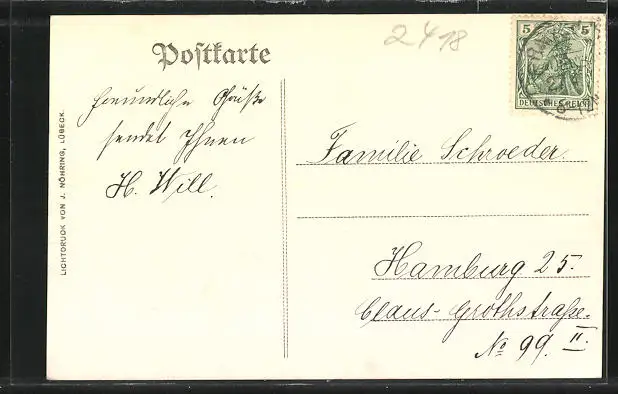 2418
5 5
DEUTSCHES REICH
Postkarte
freundliche Grüße
sendet Ihnen
H. Will.
Familie Schroeder.
Hamburg 25.
Claus-Grothstraße.
No 99. II.
LICHTDRUCK VON J. NÖHRING, LÜBECK.